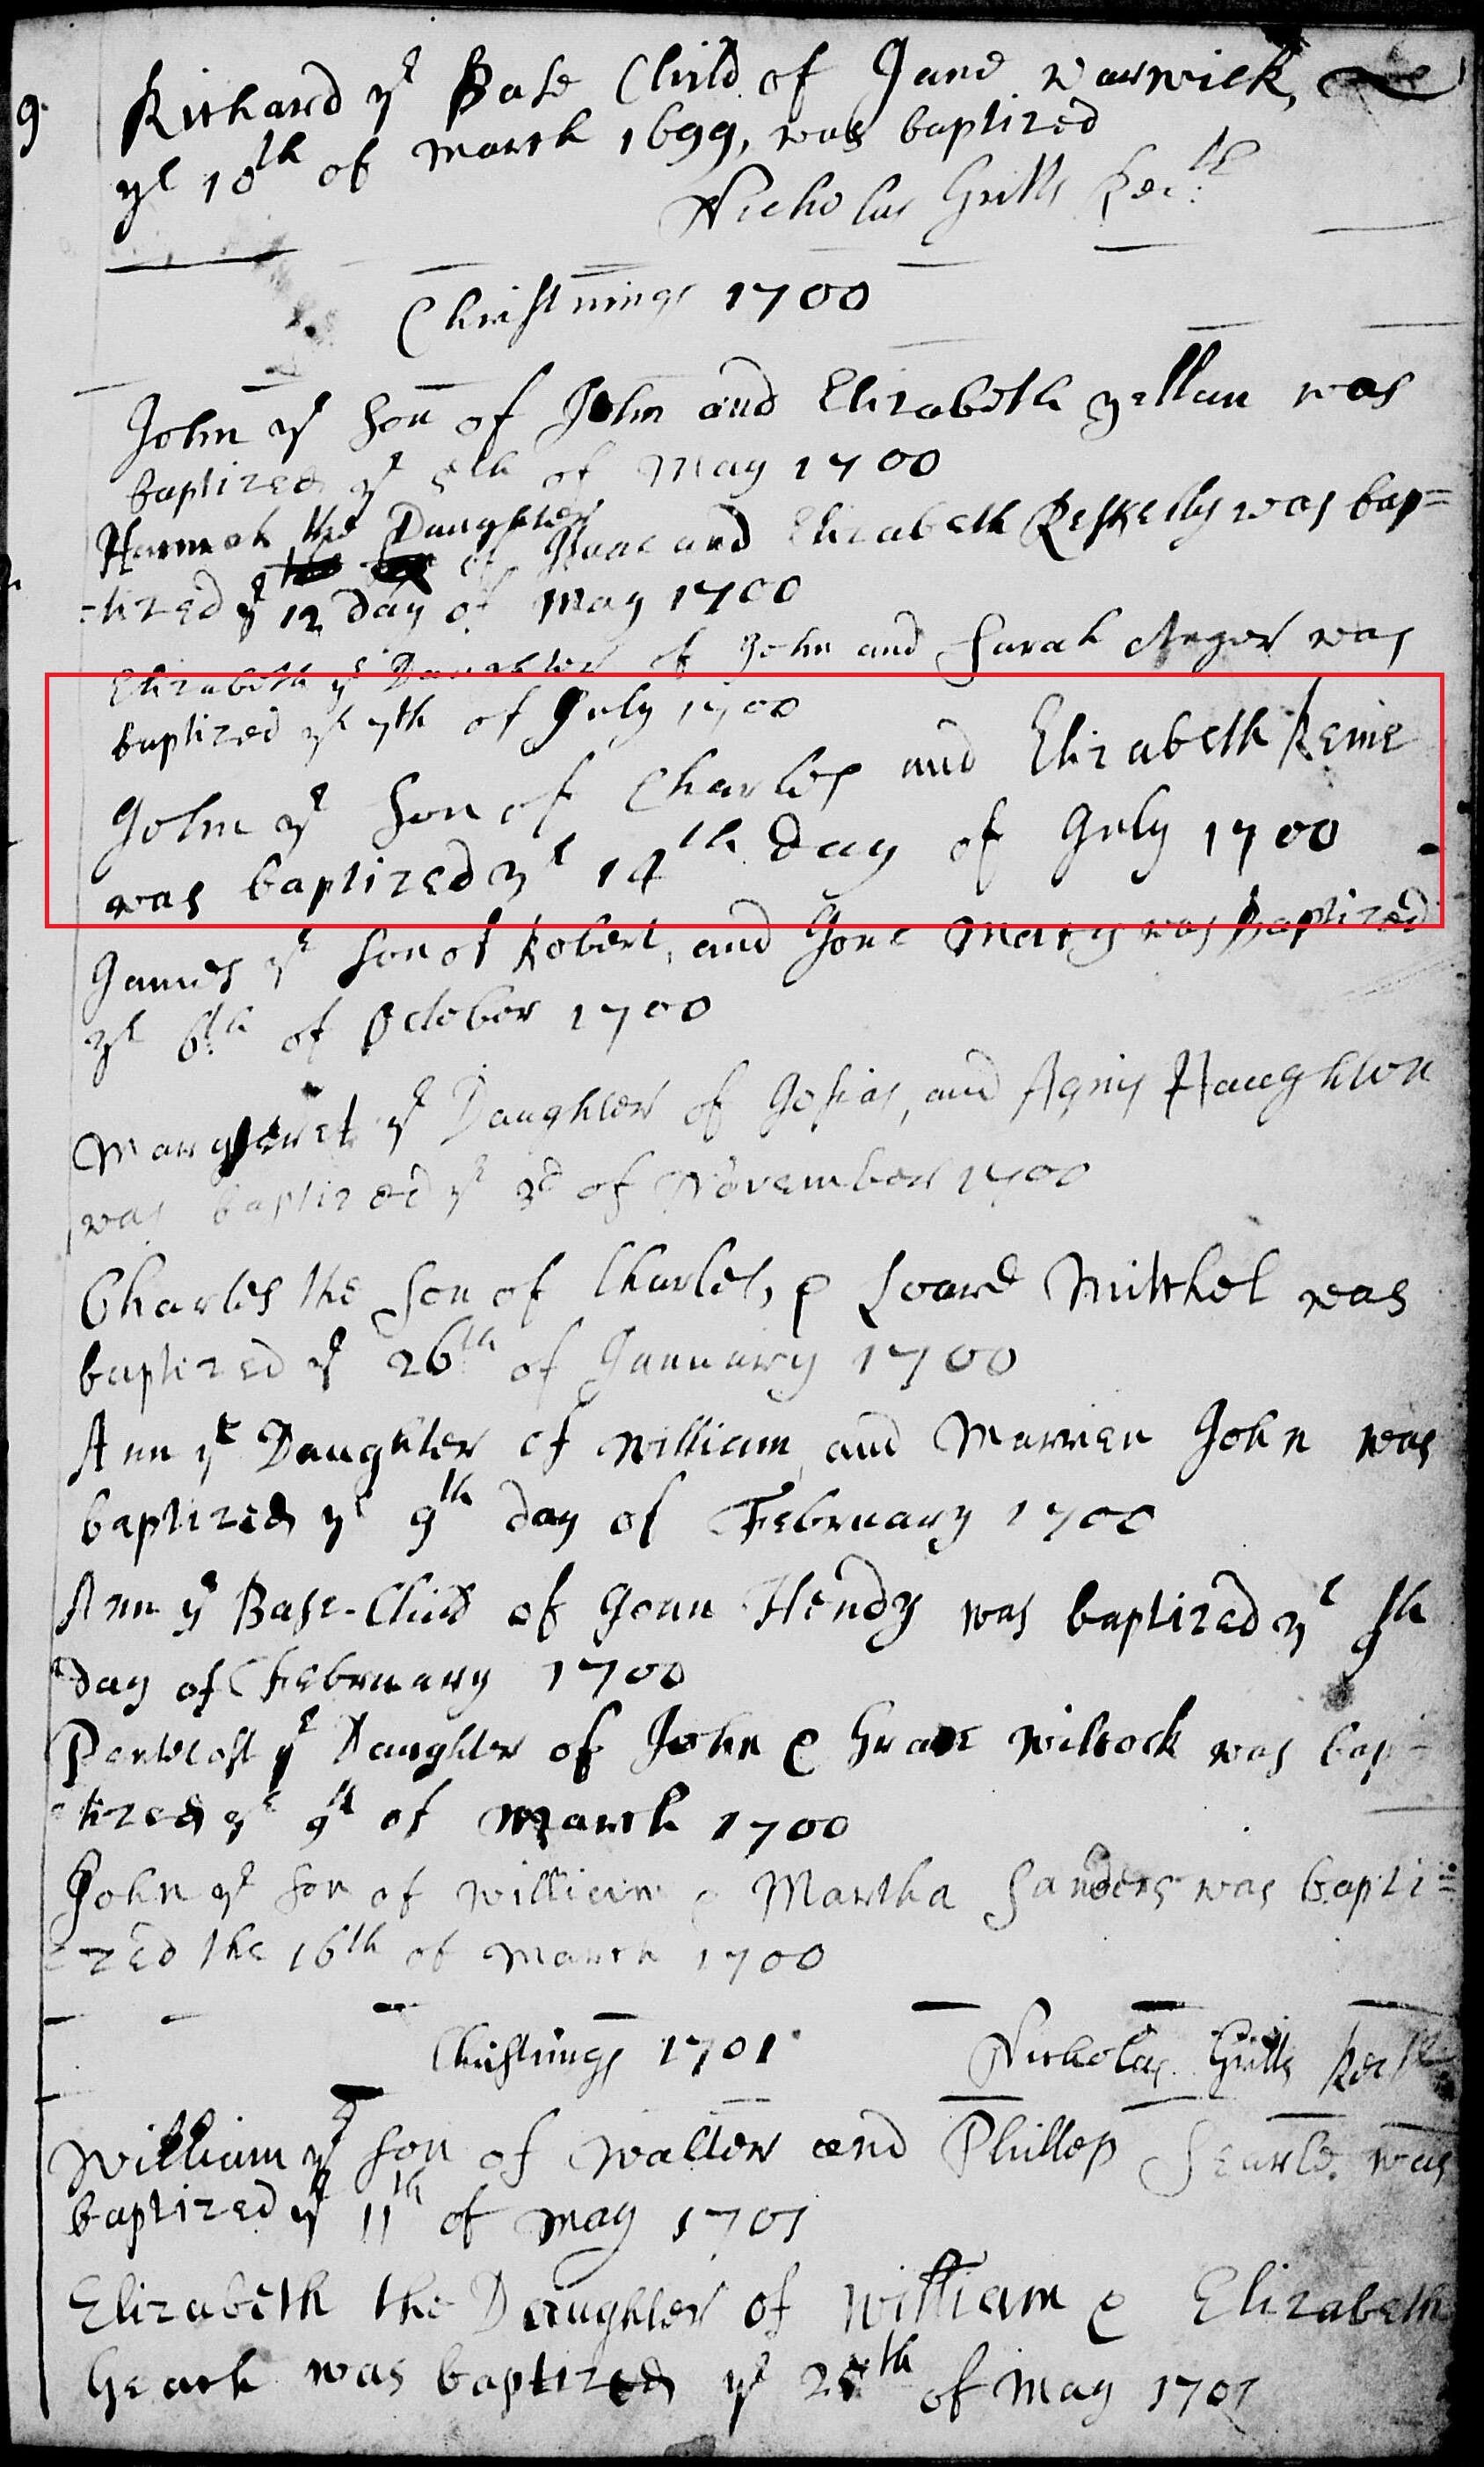 9
Richard ye Base Child of Jane Warwick,
ye 10th of March 1699, was baptized
Nicholas Grills Rec:tr
Christnings 1700
John ye Son of John and Elizabeth was
baptized ye 5th of May 1700
Hannah the Daughter
of and Elizabeth Reskelly was bap=
=tized ye 12 day of May 1700
Elizabeth ye Daughter of John and Sarah Angor was
baptized ye 7th of July 1700
John ye Son of Charles and Elizabeth Keme
was baptized ye 14th Day of July 1700
James ye Son of Robert, and Jone was Baptized
ye 6th of October 1700
Margaret ye Daughter of Josias, and Agnis Haughton
was baptized ye 3d of November 1700
Charles the Son of Charles, & Loard Mitchel was
baptized ye 26th of January 1700
Ann ye Daughter of William and Marren John was
baptized ye 9th day of February 1700
Ann ye Base-Child of Joan Hendy was baptized ye 9th
Day of February 1700
Pentecost ye Daughter of John & Grace Wilcock was bap=
=tized ye 9th of March 1700
John ye Son of William & Martha Sanders was bapti=
=zed the 16th of March 1700
Christnings 1701 Nicholas Grills Rectr
William ye Son of Walter and Phillep Searle was
baptized ye 11th of May 1701
Elizabeth the Daughter of William & Elizabeth
Geach was baptized ye 25th of May 1701